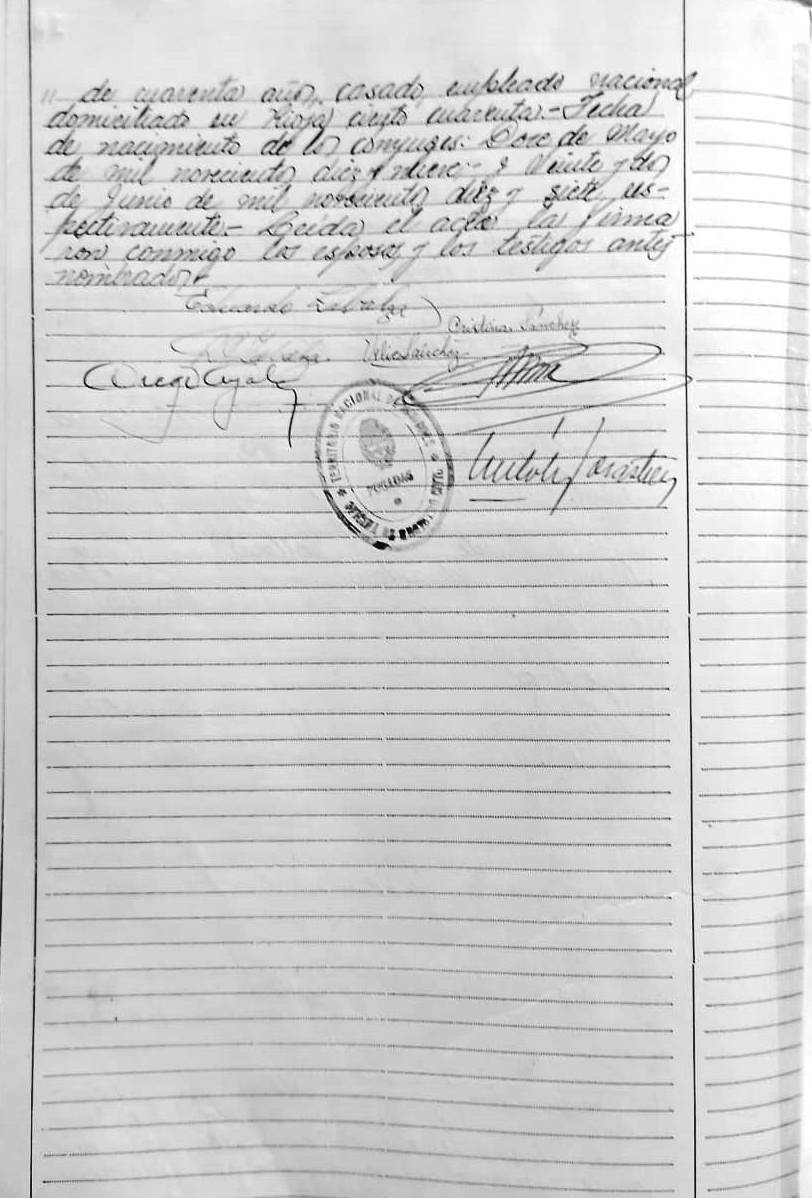 " de cuarenta años, casado, empleado nacional,
domiciliado en Rioja ciento cuarenta.- Fecha
de nacimiento de los cónyuges: Doce de Mayo
de mil novecientos diez y nueve.- y Veinte y dos
de Junio de mil novecientos diez y siete, res-
pectivamente.- Leída el acta la firma
ron conmigo los esposos y los testigos antes
nombrados.
Eduardo
Cristina Sánchez
Sánchez
Diego Ayala
TERRITORIO NACIONAL DE MISIONES
POSADAS
OFICINA DE REGISTRO CIVIL